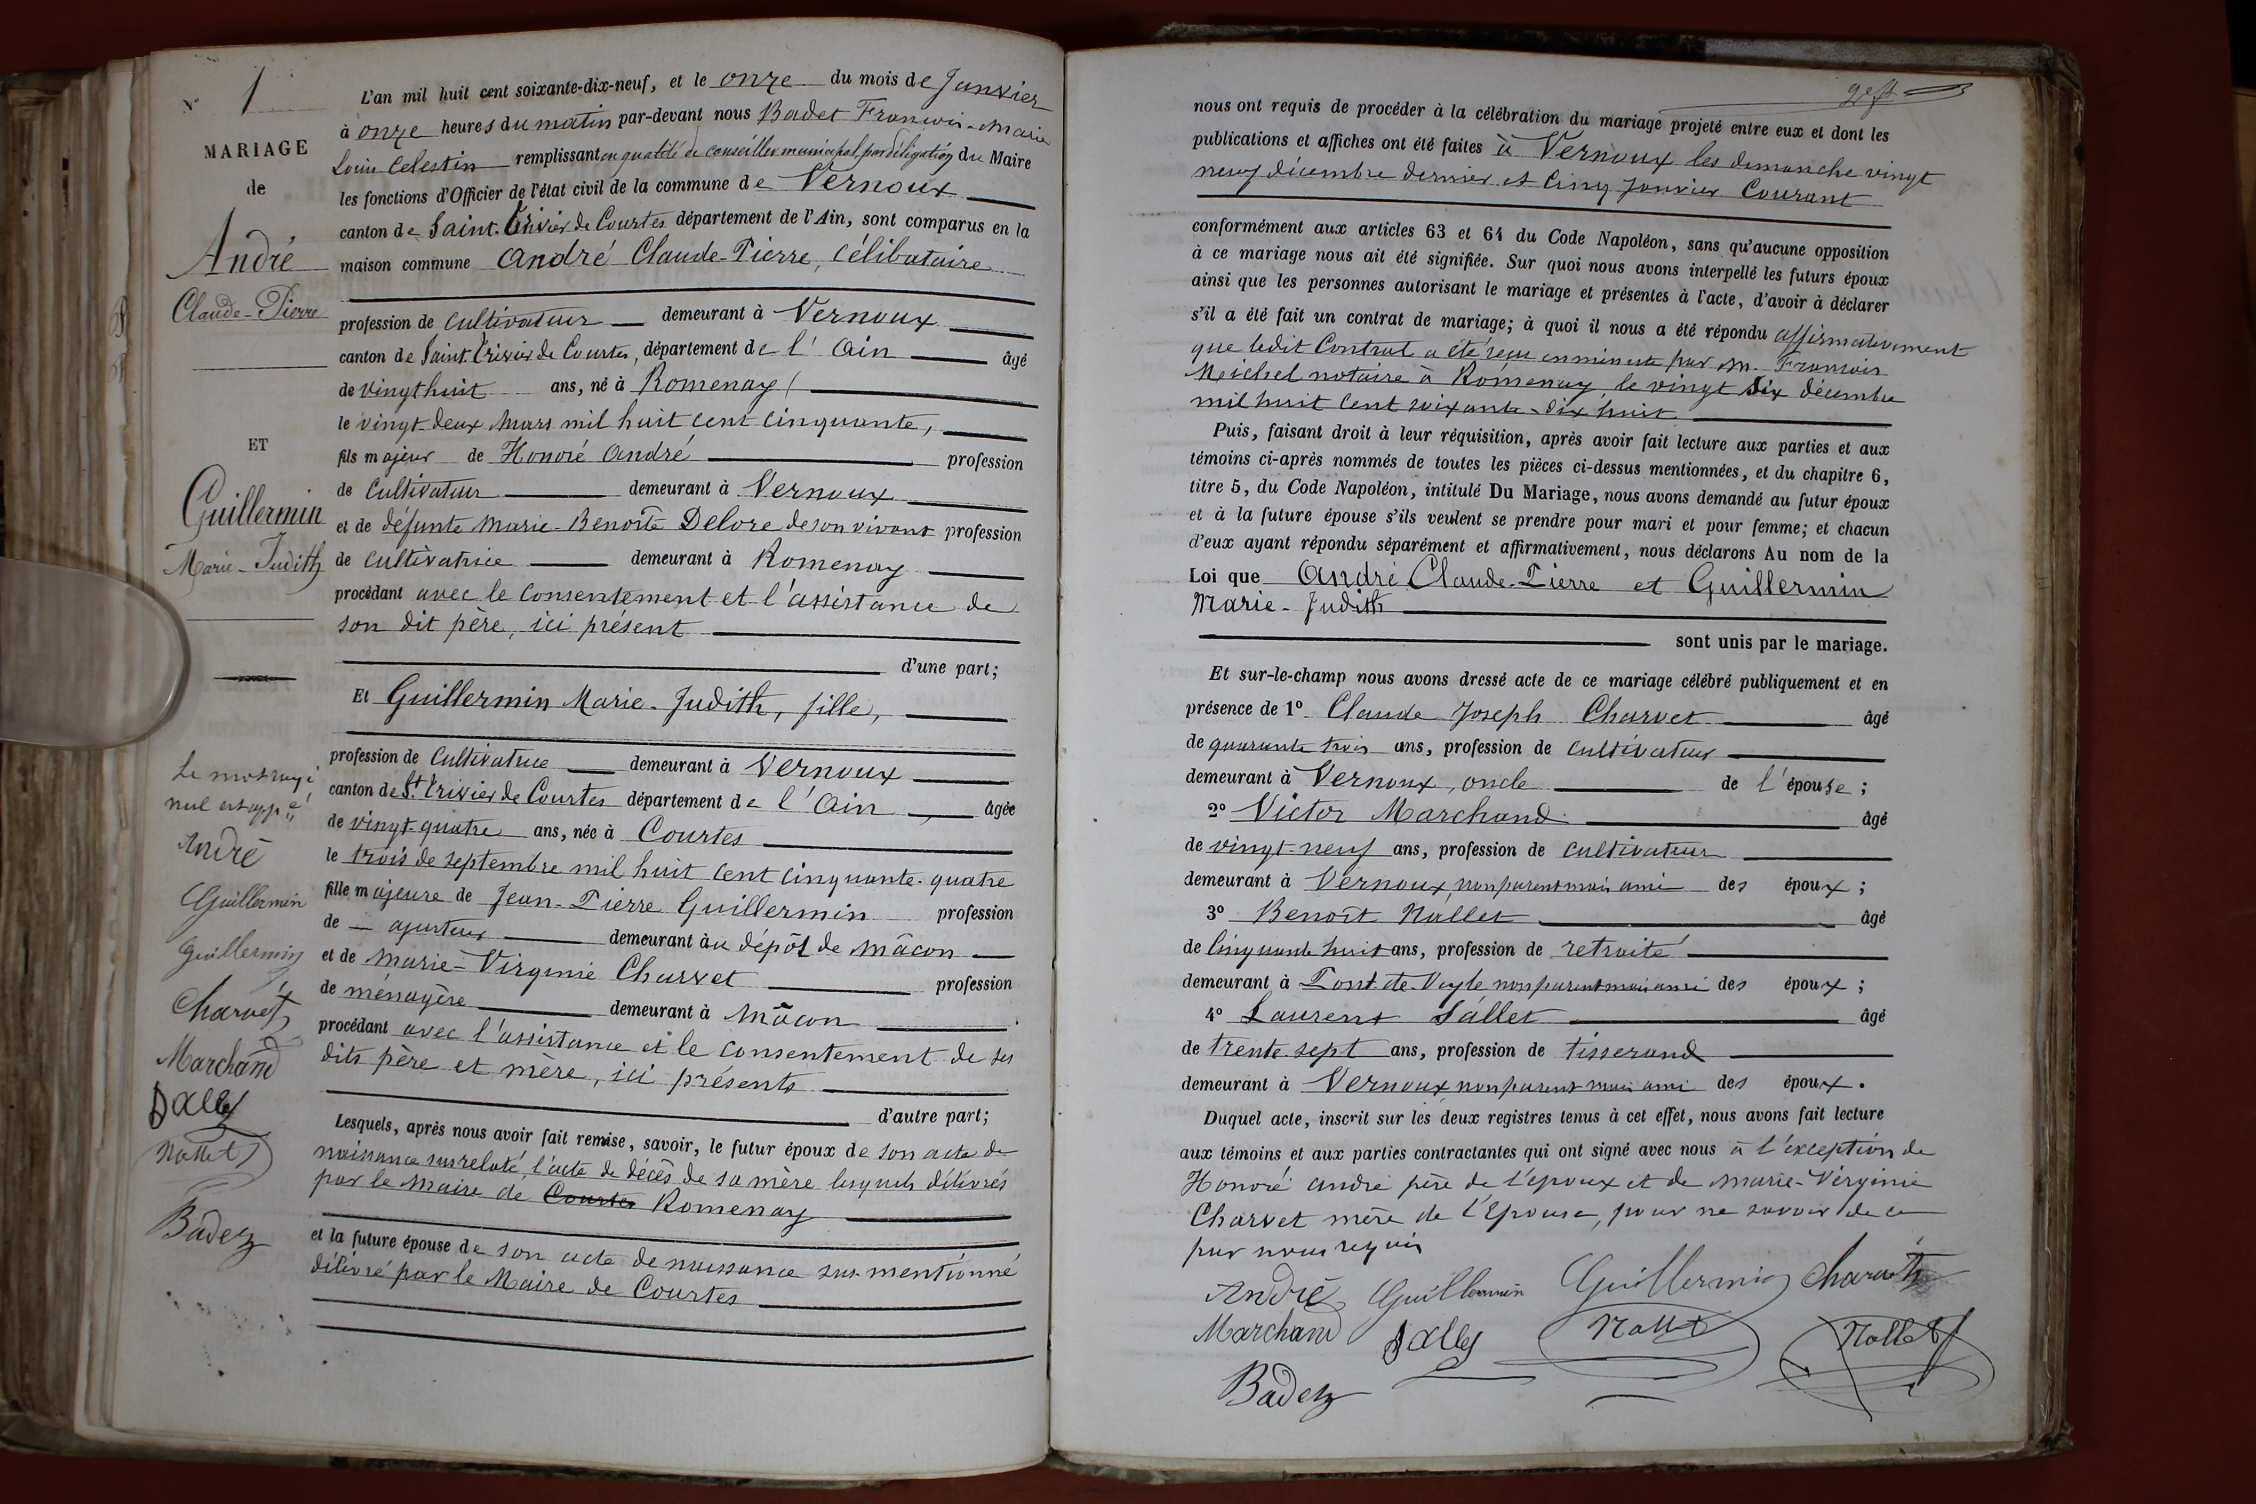 N° 1
MARIAGE
de
André
Claude-Pierre
ET
Guillermin
Marie-Judith
Le mot rayé
nul est app.é
André
Guillermin
Guillermin
Charvet
Marchand
Sallet
Nallet
Badet
L'an mil huit cent soixante-dix-neuf, et le onze du mois de Janvier
à onze heures du matin par-devant nous Badet Francois-Marie
Louis Celestin remplissant en qualité de conseiller municipal, par déligation du Maire
les fonctions d'Officier de l'état civil de la commune de Vernoux
canton de Saint-Trivier de Courtes département de l'Ain, sont comparus en la
maison commune André Claude-Pierre, célibataire
profession de cultivateur demeurant à Vernoux
canton de Saint-Trivier de Courtes, département de l'Ain âgé
de vingt huit ans, né à Romenay
le vingt-deux Mars mil huit cent cinquante,
fils majeur de Honoré André profession
de cultivateur demeurant à Vernoux
et de défunte Marie-Benoîte Delore de son vivant profession
de cultivatrice demeurant à Romenay
procédant avec le consentement et l'assistance de
son dit père, ici présent
d'une part;
Et Guillermin Marie-Judith, fille,
profession de cultivatrice demeurant à Vernoux
canton de St Trivier de Courtes département de l'Ain, âgée
de vingt-quatre ans, née à Courtes
le trois de septembre mil huit cent cinquante-quatre
fille majeure de Jean-Pierre Guillermin profession
de ajusteur demeurant au dépôt de Mâcon
et de Marie-Virginie Charvet profession
de ménagère demeurant à Mâcon
procédant avec l'assistance et le consentement de ses
dits père et mère, ici présents
d'autre part;
Lesquels, après nous avoir fait remise, savoir, le futur époux de son acte de
naissance susrelaté, l'acte de décès de sa mère lesquels délivrés
par le Maire de Courtes Romenay
et la future épouse de son acte de naissance sus-mentionné
délivré par le Maire de Courtes
nous ont requis de procéder à la célébration du mariage projeté entre eux et dont les
publications et affiches ont été faites à Vernoux les dimanche vingt
neuf décembre dernier et cinq Janvier Courant
conformément aux articles 63 et 64 du Code Napoléon, sans qu'aucune opposition
à ce mariage nous ait été signifiée. Sur quoi nous avons interpellé les futurs époux
ainsi que les personnes autorisant le mariage et présentes à l'acte, d'avoir à déclarer
s'il a été fait un contrat de mariage; à quoi il nous a été répondu affirmativement
que ledit Contrat a été reçu en minute par M. Francois
Meichel notaire à Romenay le vingt six décembre
mil huit cent soixante-dix huit
Puis, faisant droit à leur réquisition, après avoir fait lecture aux parties et aux
témoins ci-après nommés de toutes les pièces ci-dessus mentionnées, et du chapitre 6,
titre 5, du Code Napoléon, intitulé Du Mariage, nous avons demandé au futur époux
et à la future épouse s'ils veulent se prendre pour mari et pour femme; et chacun
d'eux ayant répondu séparément et affirmativement, nous déclarons Au nom de la
Loi que André Claude-Pierre et Guillermin
Marie-Judith
sont unis par le mariage.
Et sur-le-champ nous avons dressé acte de ce mariage célébré publiquement et en
présence de 1° Claude Joseph Charvet âgé
de quarante trois ans, profession de cultivateur
demeurant à Vernoux, oncle de l'épouse;
2° Victor Marchand âgé
de vingt-neuf ans, profession de cultivateur
demeurant à Vernoux, non parent mais ami des époux;
3° Benoît Nallet âgé
de cinquante huit ans, profession de retraité
demeurant à Pont-de-Veyle non parent mais ami des époux;
4° Laurent Sallet âgé
de trente-sept ans, profession de tisserand
demeurant à Vernoux, non parent mais ami des époux.
Duquel acte, inscrit sur les deux registres tenus à cet effet, nous avons fait lecture
aux témoins et aux parties contractantes qui ont signé avec nous à l'exception de
Honoré André père de l'époux et de Marie-Virginie
Charvet mère de l'Epouse, pour ne savoir de ce
par nous requis
André Guillermin Guillermin Charvet
Marchand Sallet Nallet Nallet
Badet